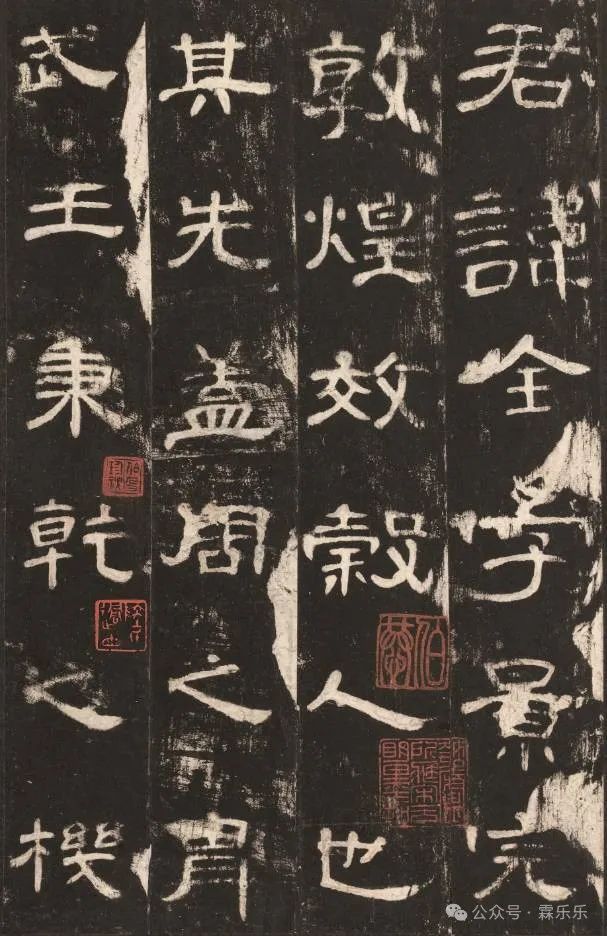 君諱全字景完
敦煌效穀人也
其先蓋周之胄
武王秉乾之機
公众号·霖乐乐